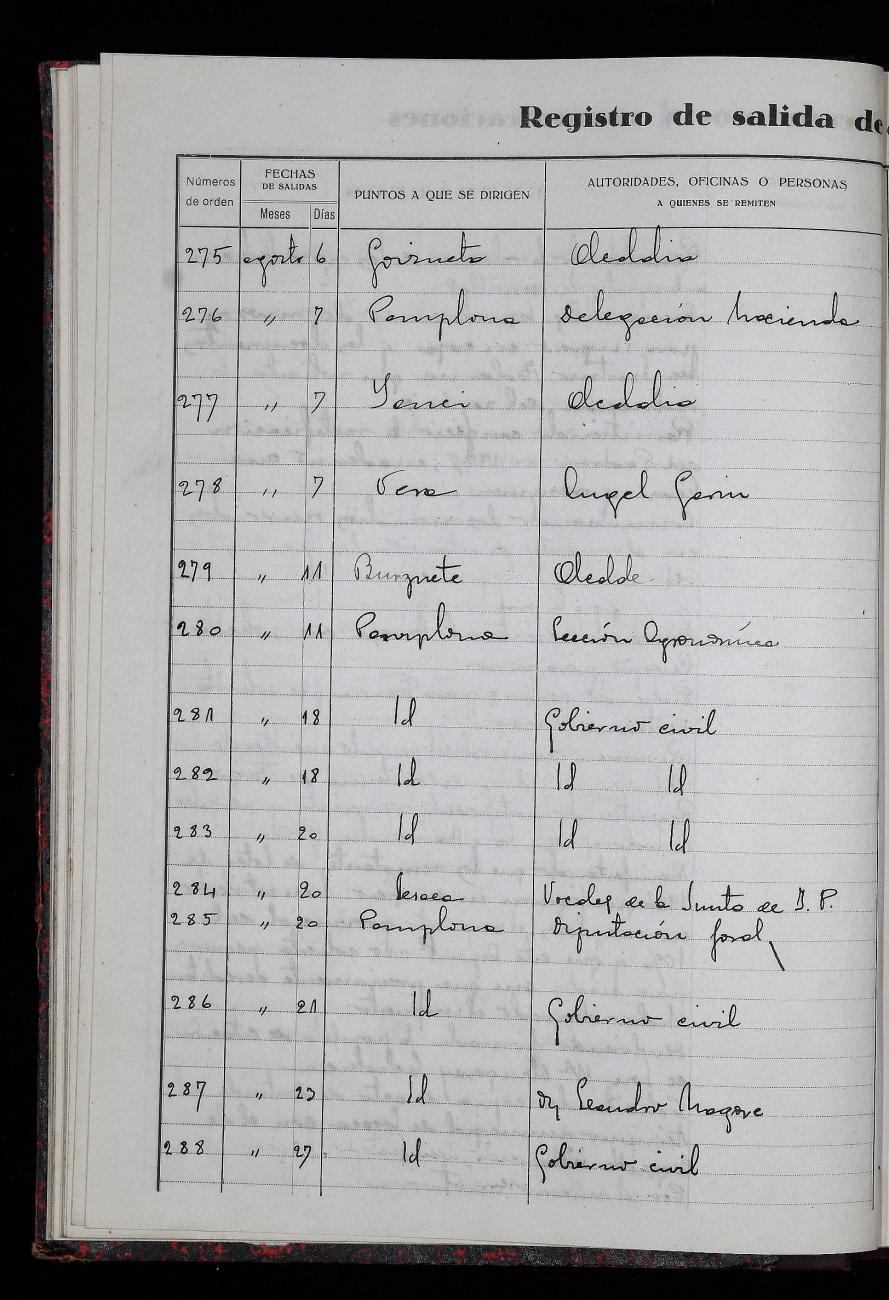 Registro de salida de
Números de orden
FECHAS DE SALIDAS
Meses Días
PUNTOS A QUE SE DIRIGEN
AUTORIDADES, OFICINAS O PERSONAS
A QUIENES SE REMITEN
275 agosto 6 Goizueta Alcaldia
276 〃 7 Pamplona Delegación hacienda
277 〃 7 Yanci Alcaldia
278 〃 7 Vera Angel Garin
279 〃 11 Burguete Alcalde
280 〃 11 Pamplona Sección Agronómica
281 〃 18 Id Gobierno civil
282 〃 18 Id Id Id
283 〃 20 Id Id Id
284 〃 20 Lesaca Vocales de la Junta de
285 〃 20 Pamplona Diputación foral
286 〃 21 Id Gobierno civil
287 〃 23 Id Leandro
288 〃 27 Id Gobierno civil